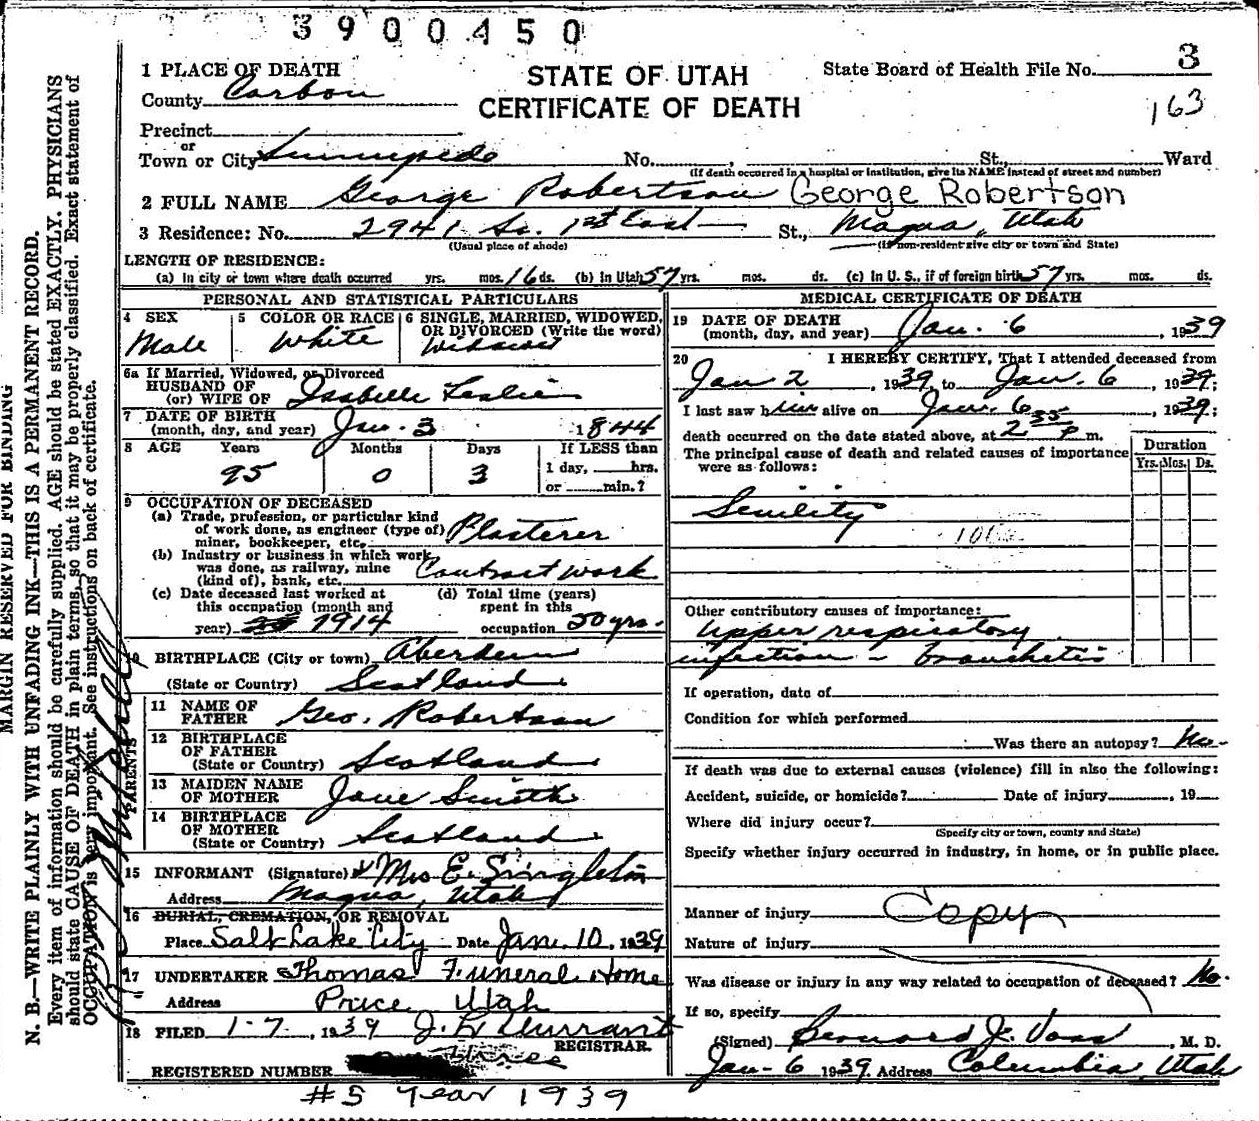 3900450
1 PLACE OF DEATH
STATE OF UTAH
CERTIFICATE OF DEATH
State Board of Health File No. 3
163
County Carbon
Precinct
or
Town or City Sunnyside No. , St., Ward
(If death occurred in a hospital or institution, give its NAME instead of street and number)
2 FULL NAME George Robertson George Robertson
3 Residence: No. 2941 So. 1st East St., Magna, Utah
(Usual place of abode) (If non-resident give city or town and State)
LENGTH OF RESIDENCE:
(a) In city or town where death occurred yrs. mos. 16 ds. (b) in Utah 57 yrs. mos. ds. (c) In U. S., if of foreign birth 57 yrs. mos. ds.
PERSONAL AND STATISTICAL PARTICULARS
4 SEX Male
5 COLOR OR RACE White
6 SINGLE, MARRIED, WIDOWED, OR DIVORCED (Write the word) Widowed
6a If Married, Widowed, or Divorced
HUSBAND OF
(or) WIFE OF Isabelle Leslie
7 DATE OF BIRTH
(month, day, and year) Jan. 3 1844
8 AGE Years Months Days If LESS than
95 0 3 1 day, hrs.
or min.?
9 OCCUPATION OF DECEASED
(a) Trade, profession, or particular kind
of work done, as engineer (type of)
miner, bookkeeper, etc. Plasterer
(b) Industry or business in which work
was done, as railway, mine
(kind of), bank, etc. Contract work
(c) Date deceased last worked at
this occupation (month and
year) 1914
(d) Total time (years)
spent in this
occupation 50 yrs.
10 BIRTHPLACE (City or town) Aberdeen
(State or Country) Scotland
PARENTS
11 NAME OF
FATHER Geo. Robertson
12 BIRTHPLACE
OF FATHER
(State or Country) Scotland
13 MAIDEN NAME
OF MOTHER Jane Smith
14 BIRTHPLACE
OF MOTHER
(State or Country) Scotland
15 INFORMANT (Signature) Mrs E. Singleton
Address Magna, Utah
16 BURIAL, CREMATION, OR REMOVAL
Place Salt Lake City Date Jan. 10, 1939
17 UNDERTAKER Thomas Funeral Home
Address Price Utah
18 FILED 1-7, 1939 J. L. Durrant
REGISTRAR.
REGISTERED NUMBER Three
#5 Year 1939
MEDICAL CERTIFICATE OF DEATH
19 DATE OF DEATH
(month, day, and year) Jan. 6, 1939
20 I HEREBY CERTIFY, That I attended deceased from
Jan 2, 1939, to Jan. 6, 1939;
I last saw him alive on Jan. 6, 1939;
death occurred on the date stated above, at 2 35 P m.
The principal cause of death and related causes of importance
were as follows:
Duration
Yrs. Mos. Ds.
Senility
Other contributory causes of importance:
Upper respiratory
infection - bronchetis
If operation, date of
Condition for which performed
Was there an autopsy? No.
If death was due to external causes (violence) fill in also the following:
Accident, suicide, or homicide? Date of injury , 19
Where did injury occur?
(Specify city or town, county and State)
Specify whether injury occurred in industry, in home, or in public place.
Manner of injury Copy
Nature of injury
Was disease or injury in any way related to occupation of deceased? No.
If so, specify
(Signed) Bernard J. Voss, M. D.
Jan-6 1939. Address Columbia, Utah
MARGIN RESERVED FOR BINDING
N. B.—WRITE PLAINLY WITH UNFADING INK—THIS IS A PERMANENT RECORD.
Every item of information should be carefully supplied. AGE should be stated EXACTLY. PHYSICIANS
should state CAUSE OF DEATH in plain terms, so that it may be properly classified. Exact statement of
OCCUPATION is very important. See instructions on back of certificate.